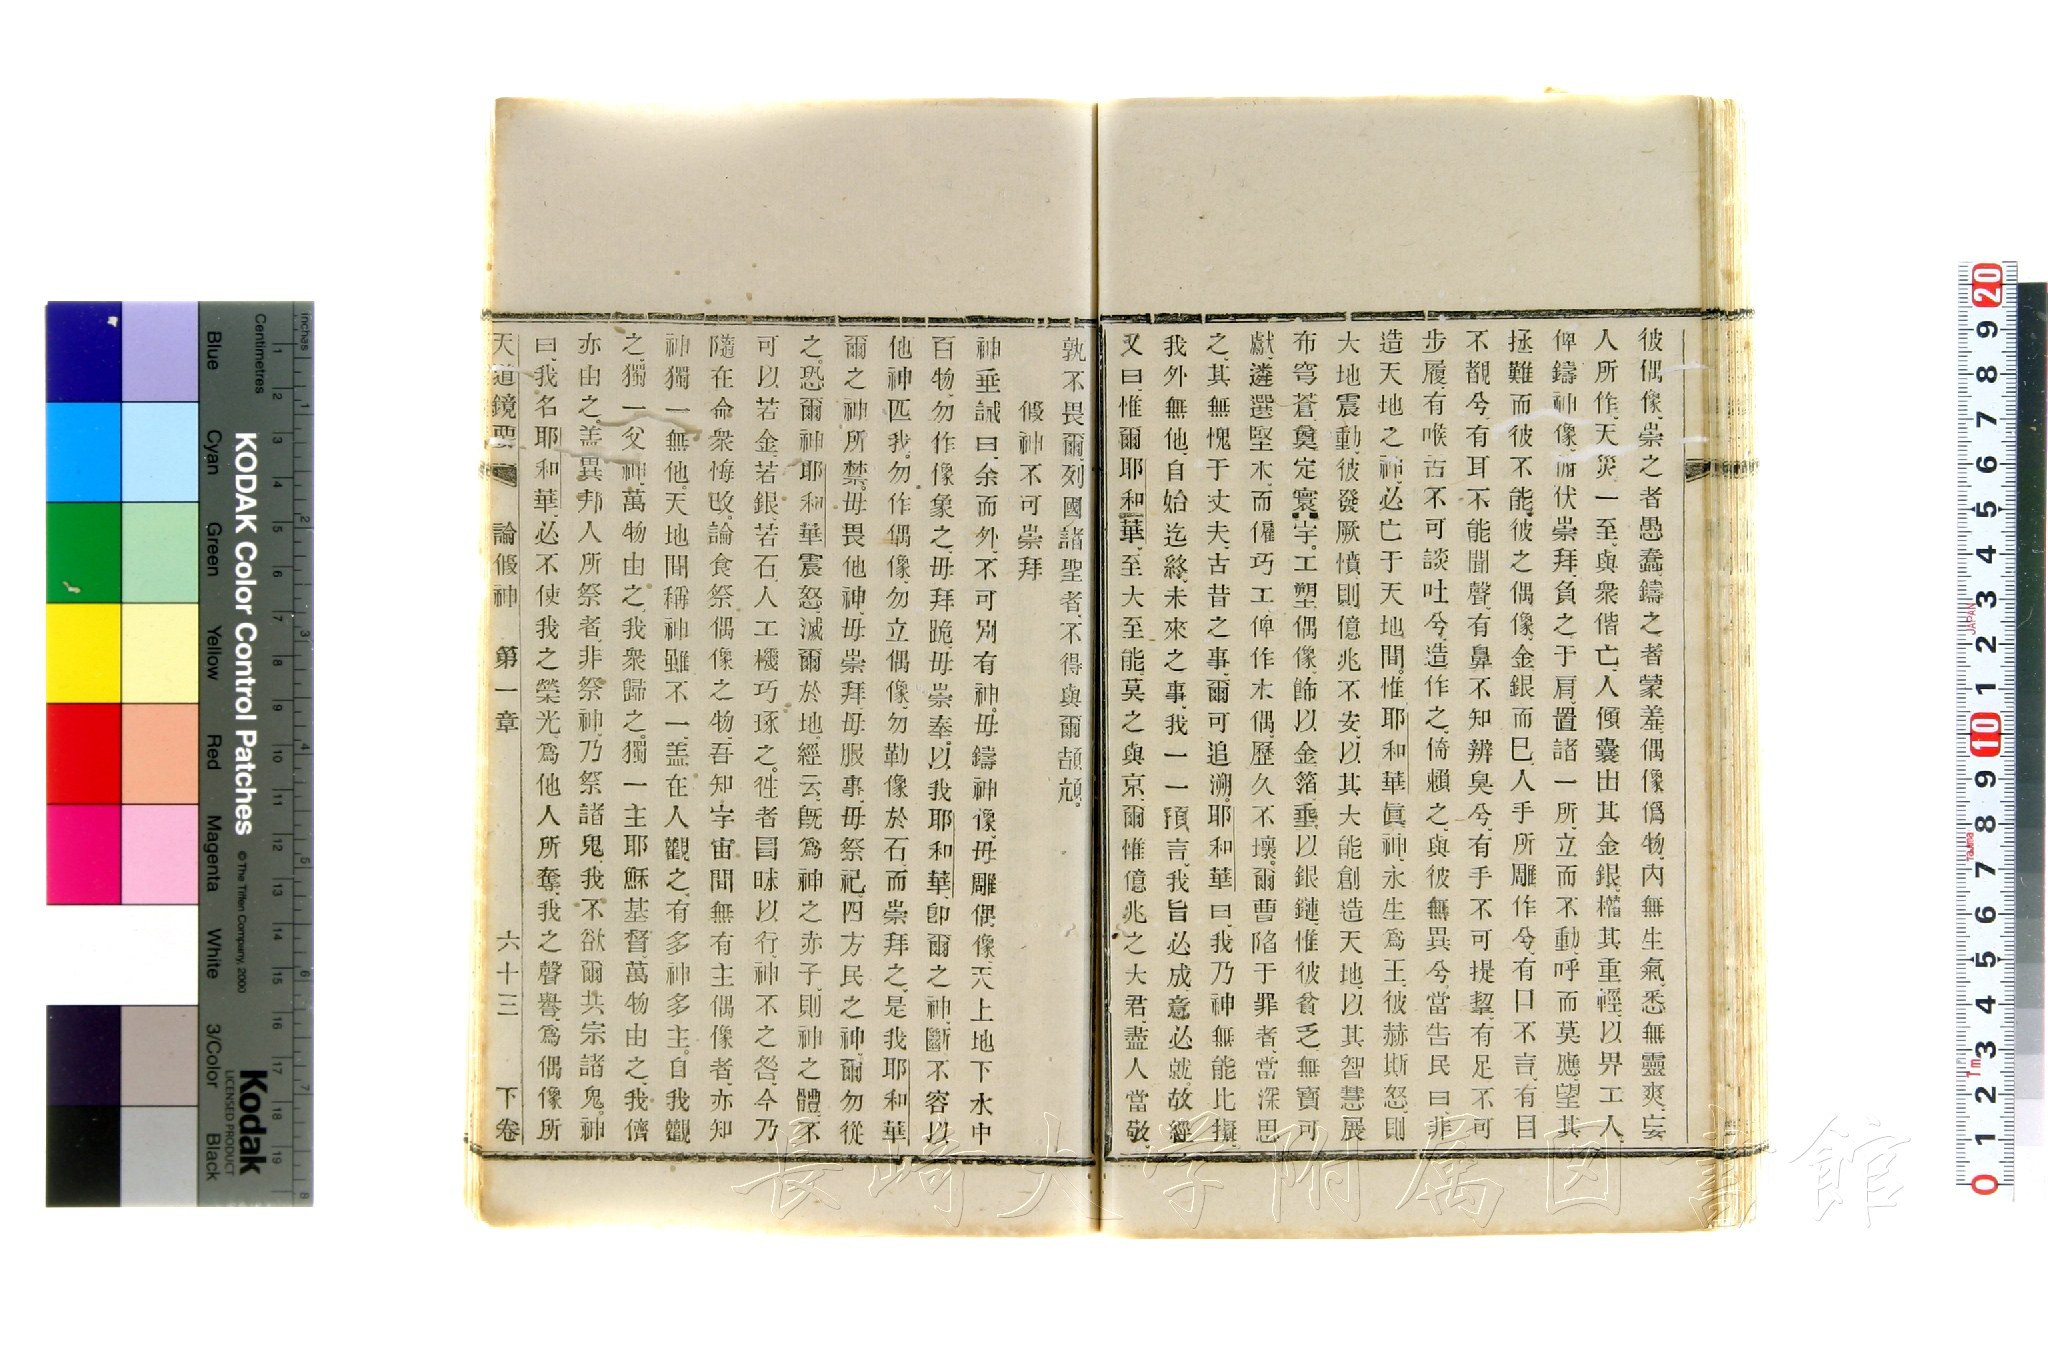 彼偶像、崇之者愚蠢、鑄之者蒙羞、偶像僞物、內無生氣、悉無靈爽、妄
人所作、天災一至、與衆偕亡、人傾囊出其金銀、權其重輕、以畀工人、
俾鑄神像、俯伏崇拜、負之于肩、置諸一所、立而不動、呼而莫應、望其
拯難而彼不能、彼之偶像、金銀而巳、人手所雕作兮、有口不言、有目
不覩兮、有耳不能聞聲、有鼻不知辨臭兮、有手不可提挈、有足不可
步履、有喉舌不可談吐兮、造作之、倚賴之、與彼無異兮、當告民曰、非
造天地之神、必亡于天地間。惟耶和華眞神、永生爲王、彼赫斯怒、則
大地震動、彼發厥憤、則億兆不安、以其大能創造天地、以其智慧展
布穹蒼、奠定寰宇。工塑偶像、飾以金箔、垂以銀鏈、惟彼貧乏無寶可
獻、遴選堅木、而僱巧工、俾作木偶、歷久不壞。爾曹陷于罪者、當深思
之、其無愧于丈夫、古昔之事、爾可追溯。耶和華曰、我乃神、無能比擬、
我外無他、自始迄終、未來之事、我一一預言、我旨必成、意必就。故經
又曰、惟爾耶和華、至大至能、莫之與京、爾惟億兆之大君、盡人當敬、
孰不畏爾、列國諸聖者、不得與爾頡頏。
假神不可崇拜
神垂誡曰、余而外、不可別有神。毋鑄神像、毋雕偶像、天上地下水中
百物、勿作像象之、毋拜跪、毋崇奉。以我耶和華、卽爾之神、斷不容以
他神匹我。勿作偶像、勿立偶像、勿勒像於石、而崇拜之、是我耶和華
爾之神所禁。毋畏他神、毋崇拜、毋服事、毋祭祀、四方民之神、爾勿從
之。恐爾神耶和華震怒、滅爾於地、經云、旣爲神之赤子、則神之體、不
可以若金、若銀、若石、人工機巧琢之。徃者冒昧以行、神不之咎、今乃
隨在命衆悔改。論食祭偶像之物、吾知宇宙間無有主偶像者、亦知
神獨一無他。天地間稱神雖不一、盖在人觀之、有多神多主。自我觀
之、獨一父神、萬物由之、我衆歸之。獨一主耶穌基督、萬物由之、我儕
亦由之、盖異邦人所祭者、非祭神、乃祭諸鬼、我不欲爾共宗諸鬼。神
曰、我名耶和華、必不使我之榮光、爲他人所奪、我之聲譽、爲偶像所
天道鏡要 論假神 第一章 六十三 下卷
長崎大学附属図書館
KODAK Color Control Patches
© The Tiffen Company, 2000
Kodak
LICENSED PRODUCT
Blue Cyan Green Yellow Red Magenta White 3/Color Black
Centimetres
inches
1 2 3 4 5 6 7 8 9 10 11 12 13 14 15 16 17 18 19
1 2 3 4 5 6 7 8
20 9 8 7 6 5 4 3 2 1 10 9 8 7 6 5 4 3 2 1 0
JAPAN